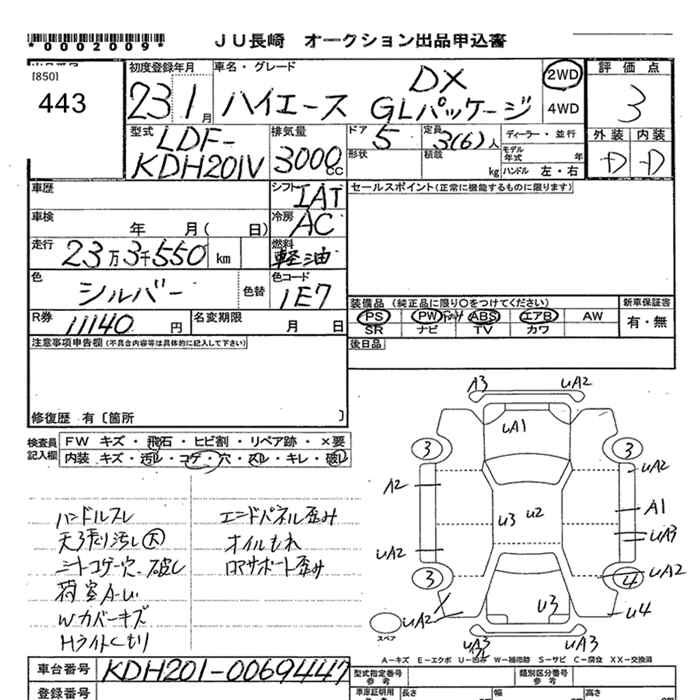 *0002009* JU長崎 オークション出品申込書
[850] 初度登録年月 車名・グレード 2WD 評価点
443 23 1月 ハイエース DX GLパッケージ 4WD 3
外装 内装
型式 排気量 ドア 定員 ディーラー・並行 D D
LDF-KDH201V 3000cc 5 3(6)人 モデル年式 年
形状 積載 kg ハンドル 左・右
車歴 シフト IAT セールスポイント(正常に機能するものに限ります)
車検 年 月( 日) 冷房 AC
走行 23万3千550 km 燃料 軽油
色 シルバー 色替 色コード 1E7
装備品(純正品に限り○をつけてください) 新車保証書
R券 11140円 名変期限 月 日 PS PW ABS エアB AW 有・無
SR ナビ TV カワ
注意事項申告欄(不具合内容等は具体的に記入して下さい) 後日品
修復歴 有〔箇所 〕
検査員記入欄 FW キズ・飛石・ヒビ割・リペア跡・×要
内装 キズ・汚レ・コゲ・穴・スレ・キレ・破レ
ハンドルスレ エンドパネル歪み
天張り汚し大 オイルもれ
シートコゲ穴、破レ ロアサポート歪み
荷室A-U
Wカバーキズ
Hライトくもり
A3 UA2
UA1
3 3
A2 UA2
U3 U2 A1
UA3
UA2 UA2
3 4
X U3 U4
UA2
スペア
UA3 UA3
A-キズ E-エクボ U-凹み W-補修跡 S-サビ C-腐食 XX-交換済
車台番号 KDH201-0069447 型式指定番号 参考 類別区分番号 参考
登録番号 車庫証明用 参考 長さ 幅 高さ